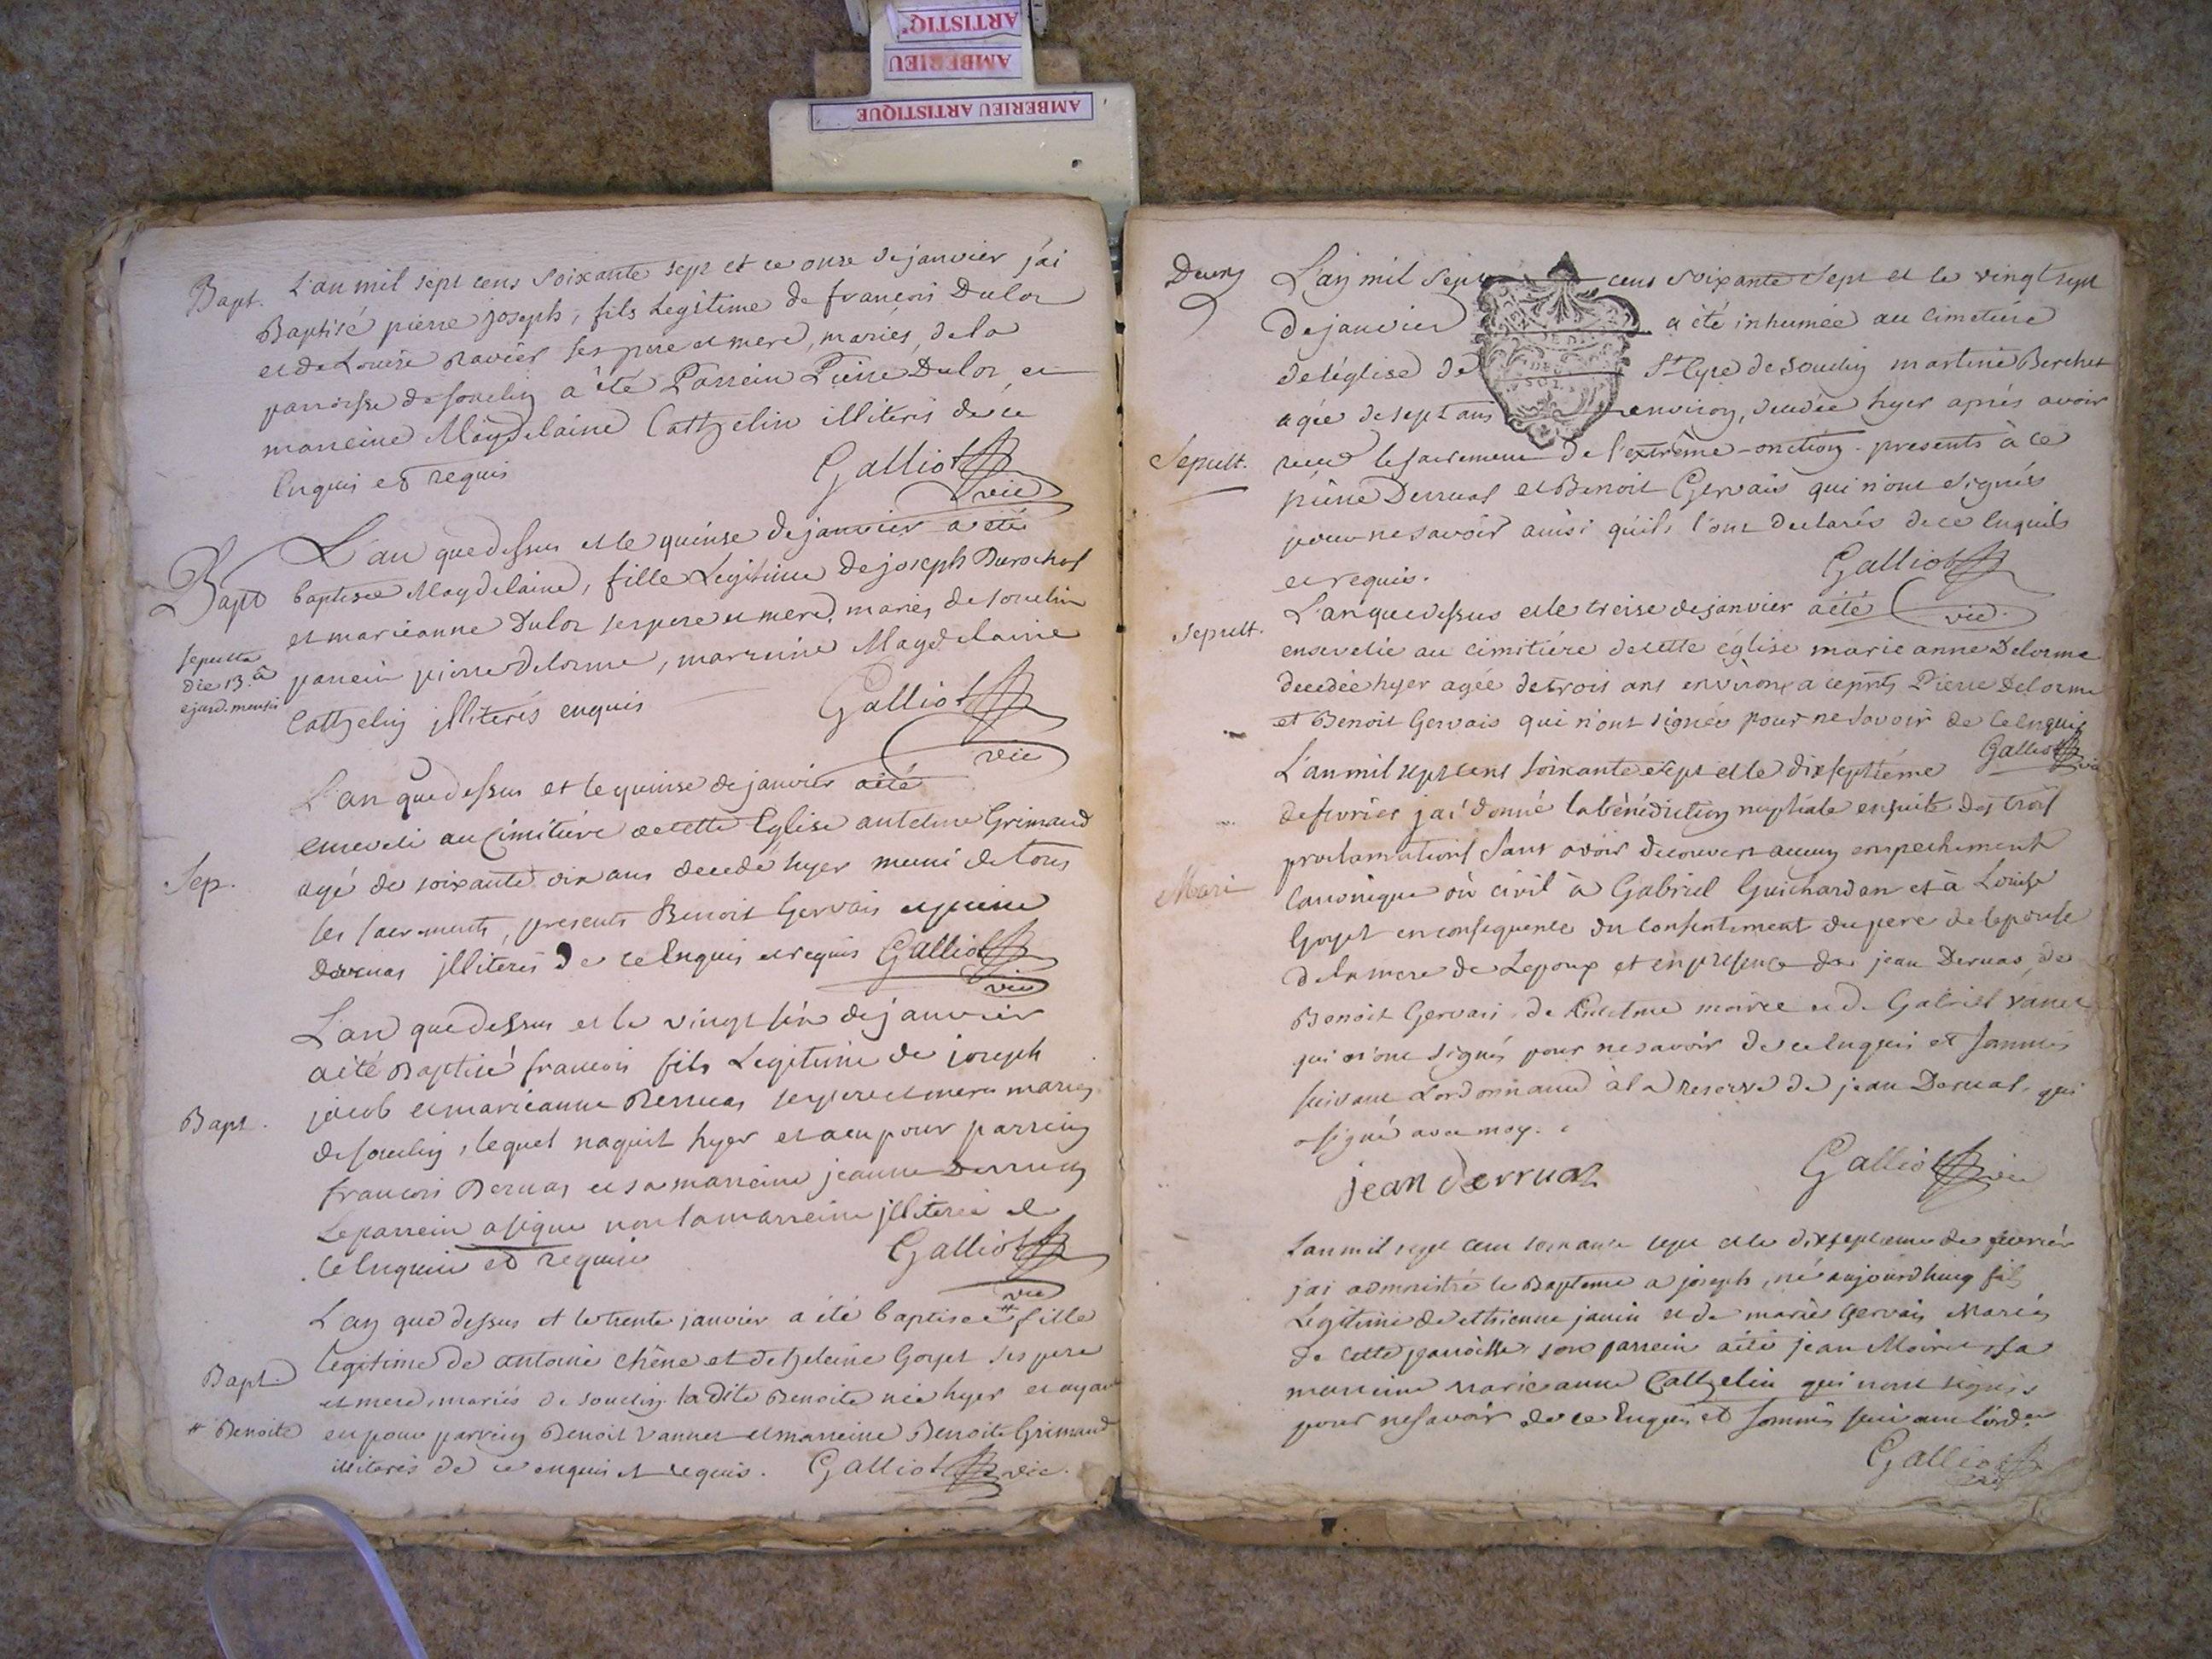 ARTISTIQ'
AMBERIEU
AMBERIEU ARTISTIQUE
Bapt. L'an mil sept cens soixante sept et ce onse de janvier j'ai
Baptisé pierre joseph, fils Legitime de francois Dulor
et de Louise Ravier ses pere et mere, mariés, de la
parroisse de souclin a été Parrein Pierre Dulor et
marreine Magdelaine Cathelin illiterés de ce
Enquis et requis
Galliot
vic
Bapt
L'an que dessus et le quinse de janvier a été
baptisée Magdelaine, fille Legitime de joseph Durochat
et marieanne Dulor ses pere et mere, mariés de souclin
sepulta
die 13.a
ejusd. mensis
parrein pierre delorme, marreine Magdelaine
Cathelin jlliterés enquis
Galliot
vic
L'an que dessus et le quinse de janvier a été
enseveli au Cimitiére de cette Eglise antelme Grimaud
Sep.
agé de soixante dix ans decedé hyer muni de tous
les sacrements, presents Benoit Gervais et pierre
Derruas jlliterés de ce Enquis et requis Galliot
vic
L'an que dessus et le vingt six de janvier
a été Baptisé francois fils Legitime de joseph
jacob et marieanne Derruas ses pere et mere mariés
Bapt.
de souclin, lequel naquit hyer et a eu pour parrein
francois Derruas et sa marreine jeanne Derruas
Le parrein a signe non la marreine jlliterée de
ce Enquise et requise
Galliot
vic
L'an que dessus et le trente janvier a été baptisée # fille
Bapt.
legitime de antoine chêne et de heleine Goyet ses pere
et mere, mariés de souclin. la dite Benoite née hyer et ayant
# Benoite
eu pour parrein Benoit Vannet et marreine Benoite Grimaud
illiterés de ce enquis et requis. Galliot vic.
L'an mil sept cens soixante sept et le vingt sept
de janvier a été inhumée au Cimetiere
de l'église de St Cyre de souclin martine Berchet
agée de sept ans environ, decedée hyer aprés avoir
Sepult.
recu le sacrement de l'extrême-onction. presents à ce
pierre Derruas et Benoit Gervais qui n'ont signés
pour ne savoir ainsi qu'ils l'ont declarés de ce Enquis
et requis.
Galliot
vic.
Sepult.
L'an que dessus et le treise de janvier a été
ensevelie au cimitiére de cette église marie anne Delorme
decedée hyer agée de trois ans environ, a ce pnts Pierre Delorme
et Benoit Gervais qui n'ont signés pour ne savoir de ce enquis
Galliot vic
L'an mil sept cens soixante et sept et le dixseptiéme
de fevrier j'ai donné la bénédiction nuptiale ensuite des trois
proclamations sans avoir decouvert aucun empechement
Mari
Canonique où civil à Gabriel Guichardon et à Louise
Goyet en consequence du consentement du pere de l'epouse
de la mere de Lepoux et en presence de jean Derruas, de
Benoit Gervais de antelme moiret et de Gabriel Vanet
qui n'ont signés pour ne savoir de ce Enquis et sommés
suivant Lordonnance à la reserve de jean Derruas, qui
a signé avec moy.
jean derruas
Galliot vic
L'an mil sept cens soixante sept et le dixseptieme de fevriér
j'ai administré le Bapteme a joseph, né aujourdhuy fils
Legitime de etienne janin et de marie Gervais Mariés
de cette parroisse, son parrein a été jean Moiret, sa
marreine Marieanne Cathelin qui n'ont signés
pour ne savoir de ce Enquis et sommés suivant lord.
Galliot
vic